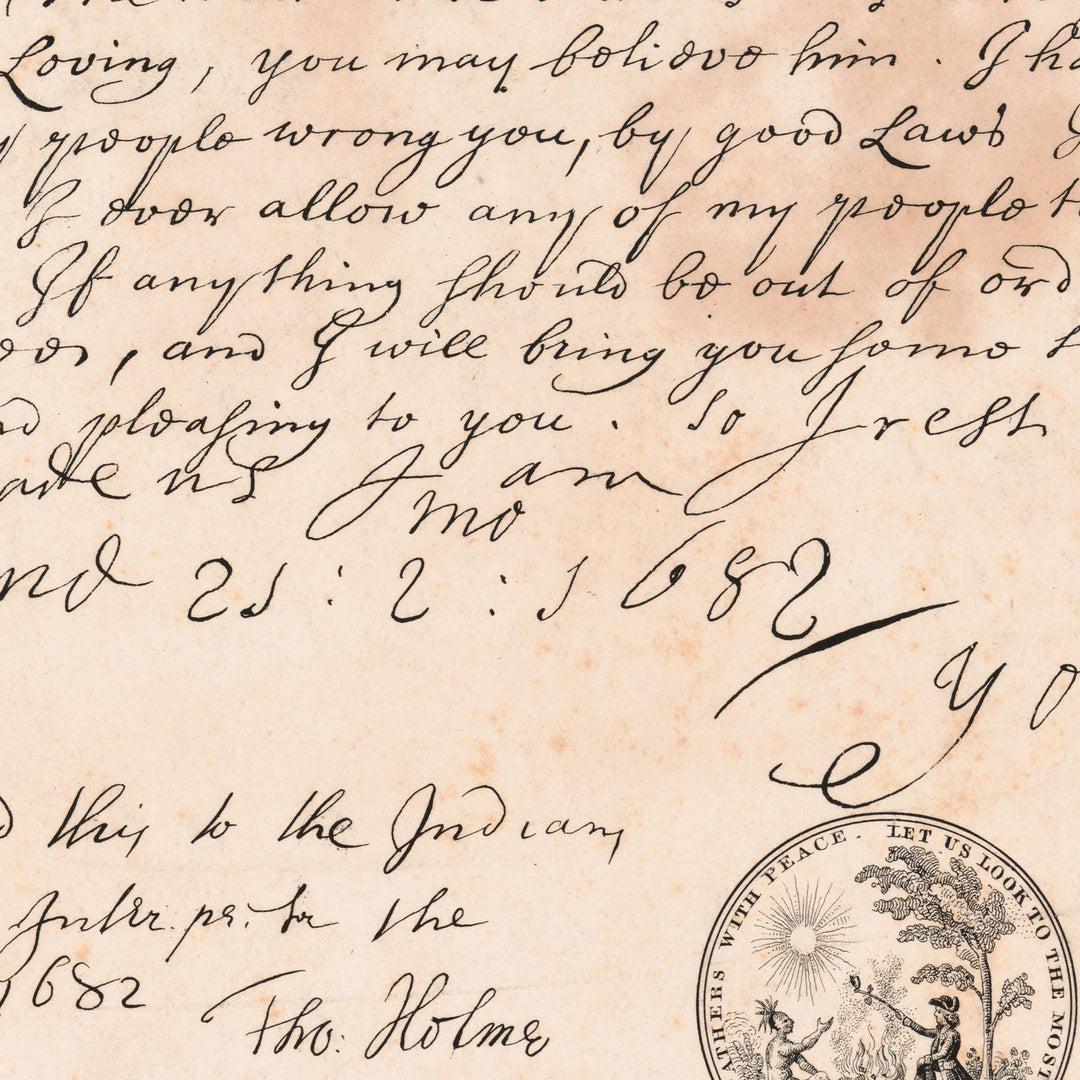 Loving, you may believe him. I ha
people wrong you, by good Laws
I ever allow any of my people t
If anything should be out of ord
ees, and I will bring you some t
d pleasing to you. So I rest
ade us I am
mo
nd 21: 2: 1682
Yo
d this to the Indians
Inter. pr. for the
1682
Tho: Holme
ATHERS WITH PEACE. LET US LOOK TO THE MOST